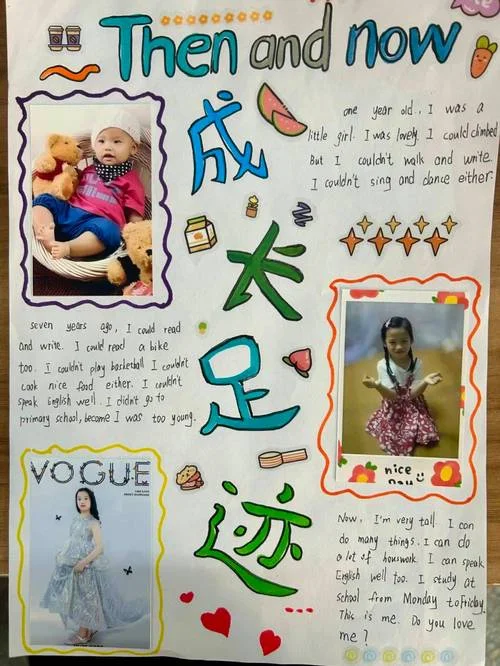 Then and now
成
长
足
迹
one year old, I was a
little girl. I was lovely. I could climbed
But I couldn't walk and write.
I couldn't sing and dance either.
seven years ago, I could read
and write. I could read a bike
too. I couldn't play basketball I couldn't
cook nice food either. I couldn't
speak English well. I didn't go to
primary school, because I was too young.
nice
VOGUE
Now, I'm very tall. I can
do many things. I can do
a lot of housework. I can speak
English well too. I study at
school from Monday to Friday.
This is me. Do you love
me?